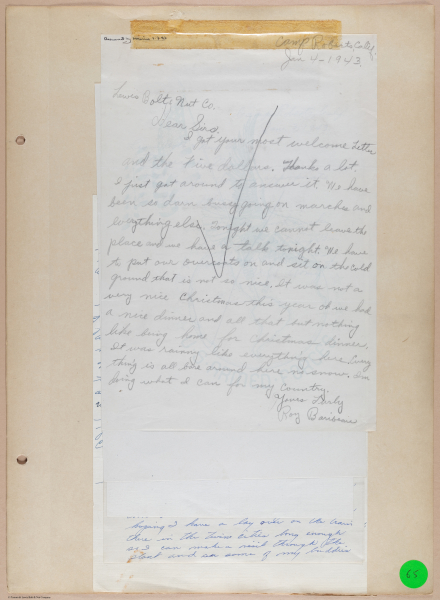 Camp Roberts, Calif.
Jan 4-1943.
Lewis Bolt & Nut Co.
Dear Sirs,
I got your most welcome letter
and the five dollars. Thanks a lot.
I just got around to answer it. We have
been so darn busy going on marches and
everything else. Tonight we cannot leave the
place and we have a talk tonight. We have
to put our overcoats on and set on the cold
ground that is not so nice. It was not a
very nice Christmas this year as we had
a nice dinner and all that but nothing
like being home for Christmas dinner.
It was rainy like everything here. Every
thing is all ice around here no snow. Im
doing what I can for my Country.
Yours Truly
Roy
hoping I have a lay over on the train
there in the Twin Cities long enough
so I can make a visit through the
plant and see some of my buddies
65